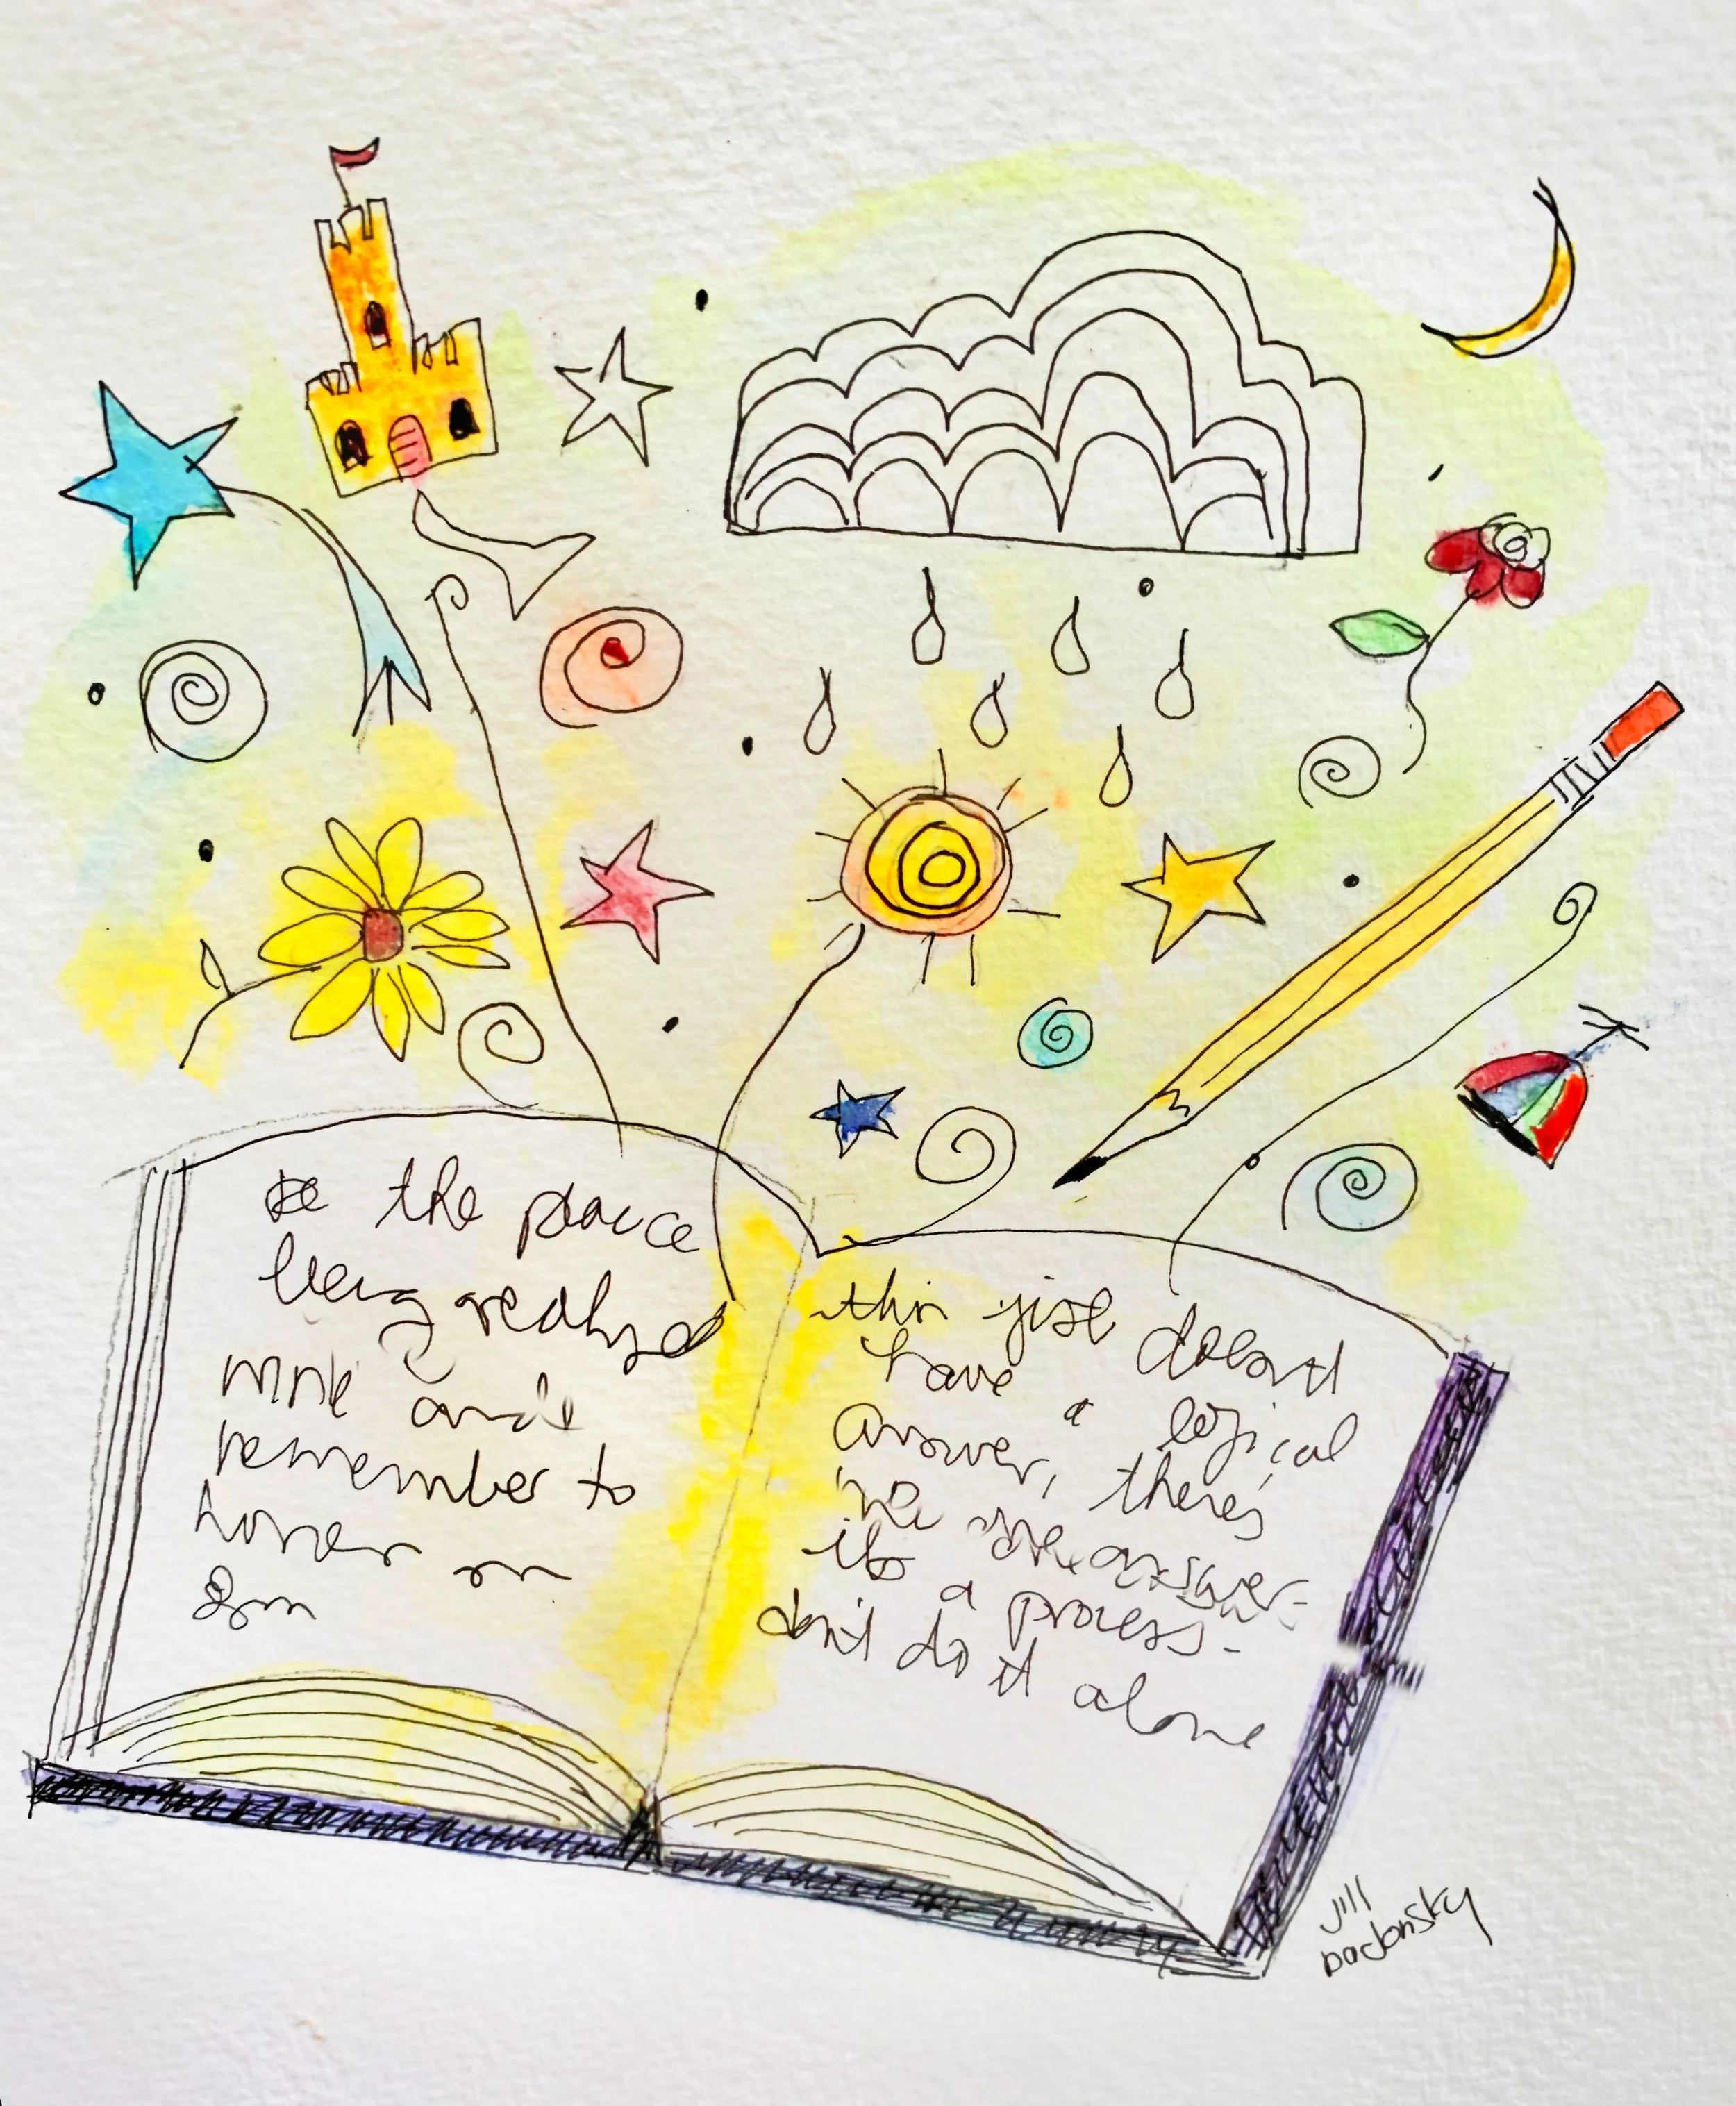 the peace
being realized
and
remember to
hover on
this gist doesn't
have a logical
answer, there's
no one answer-
its a process-
don't do it alone
Jill
Badonsky